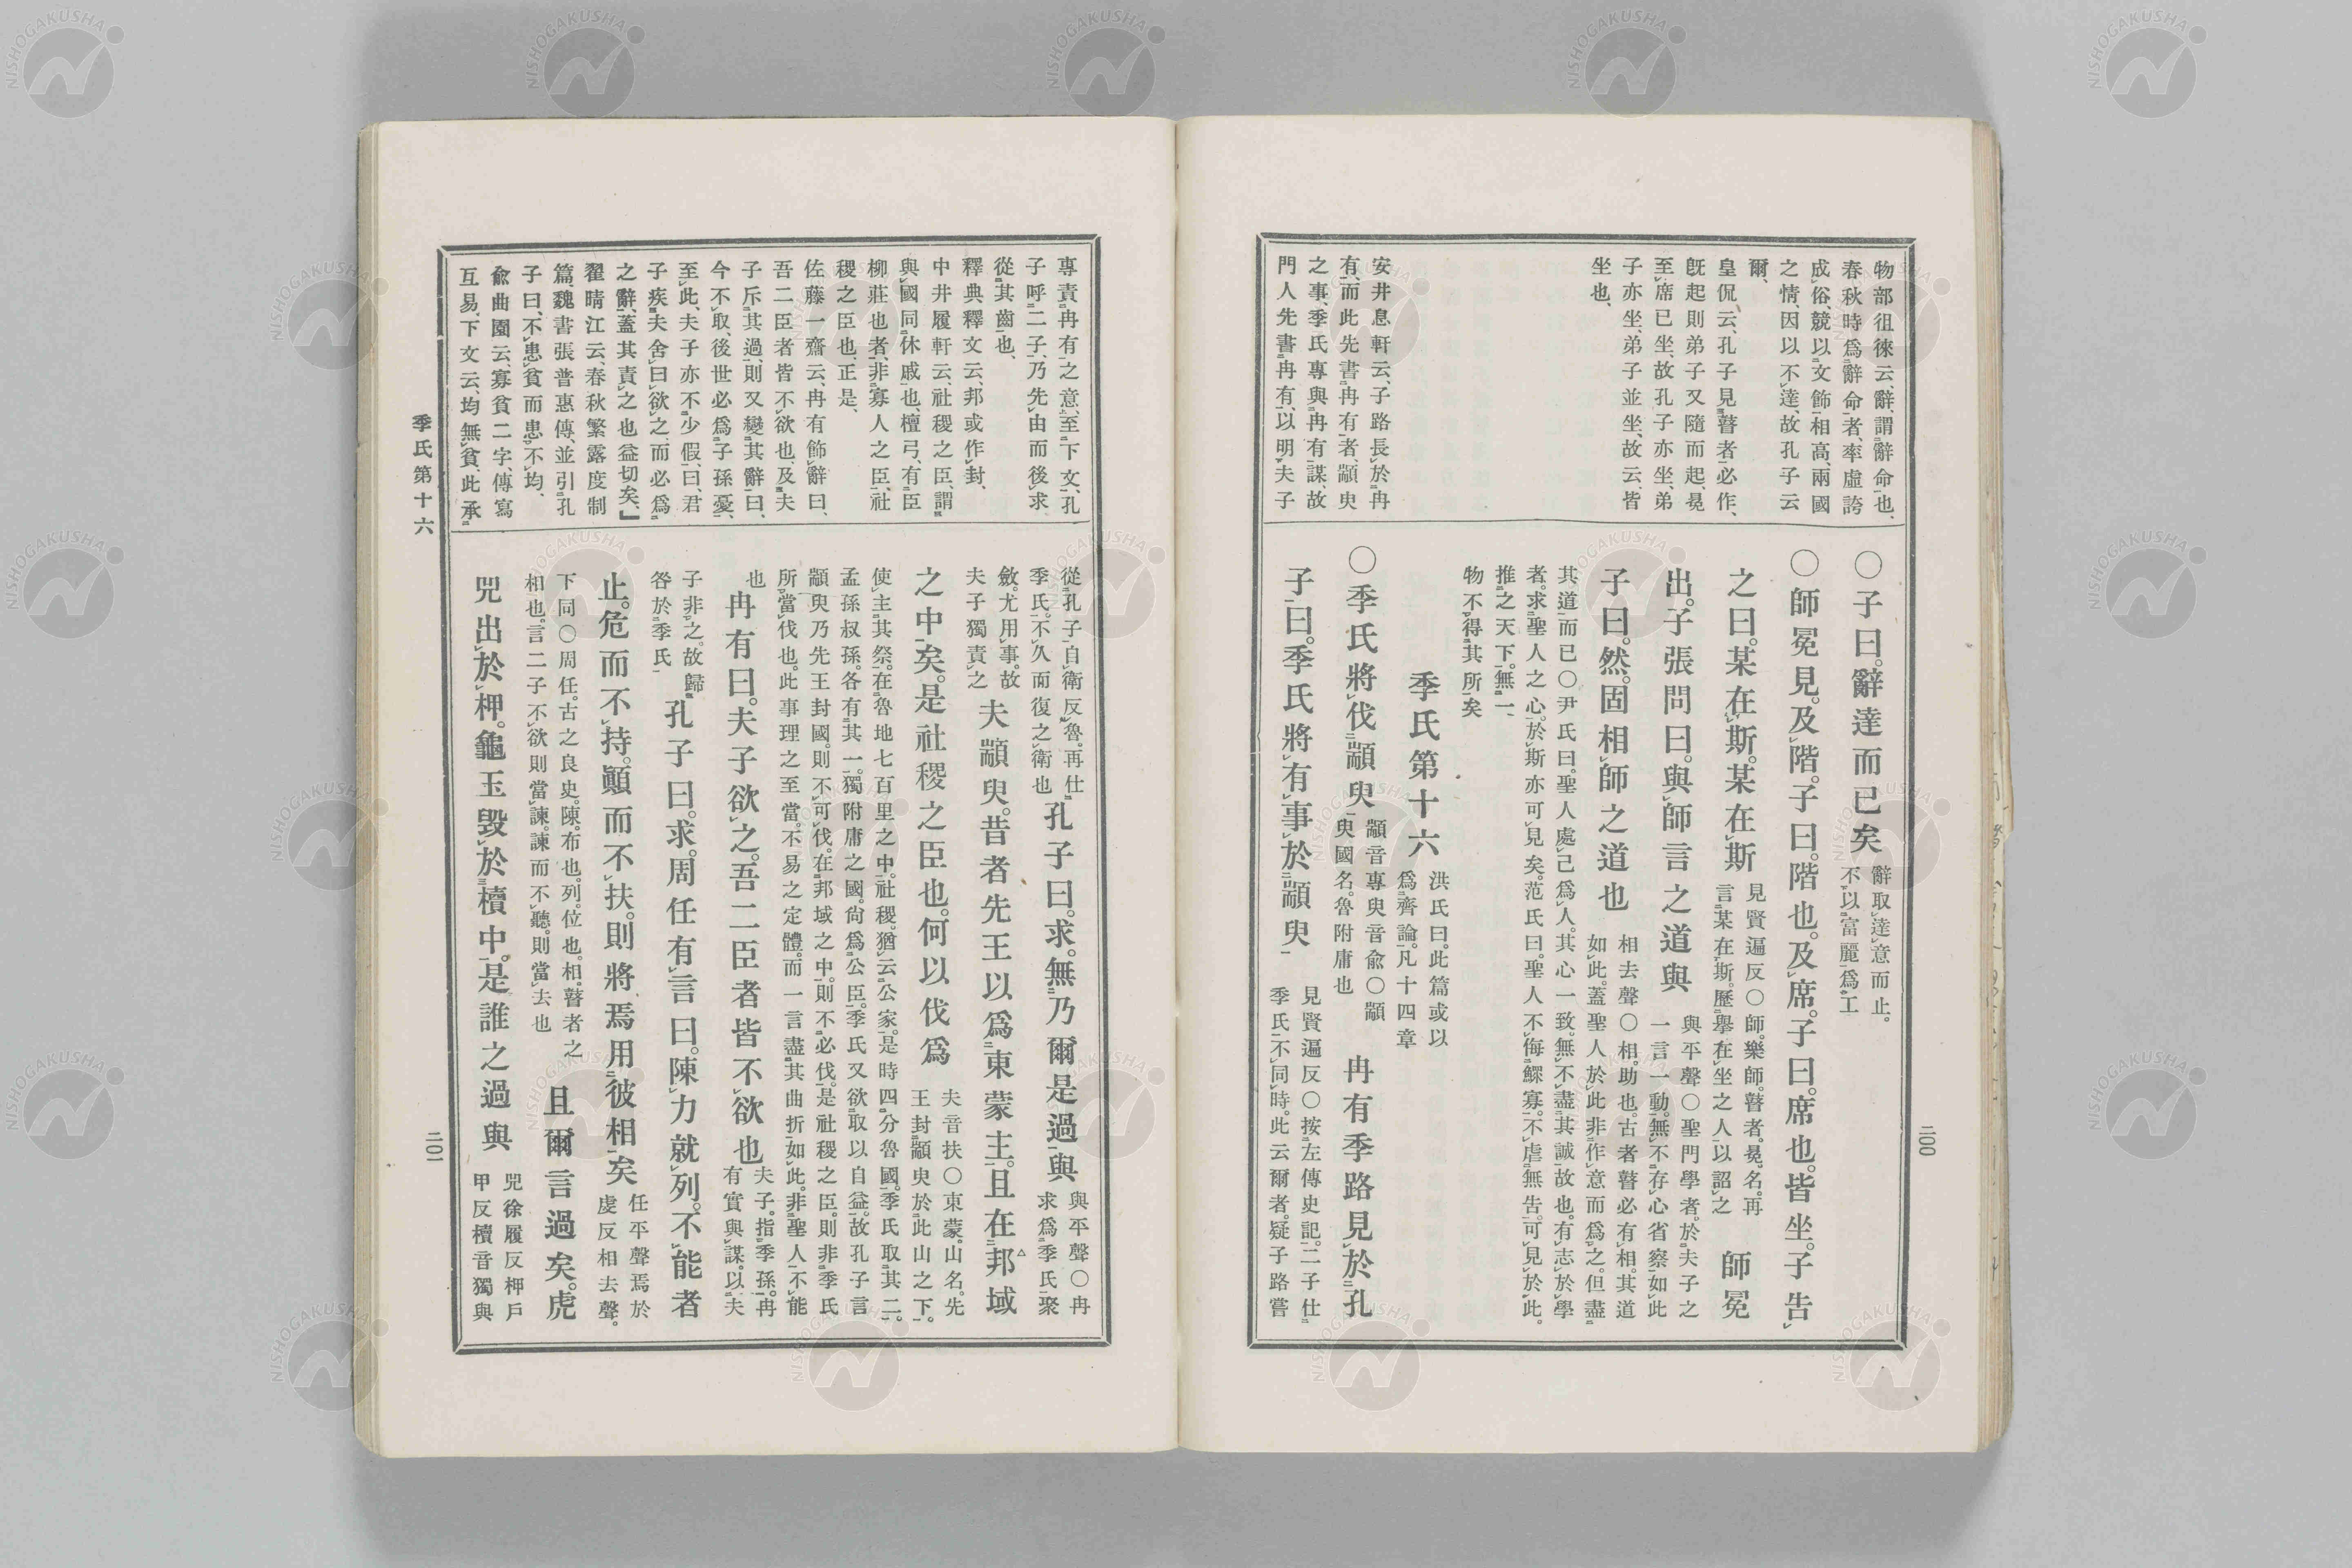 物部徂徠云、辭、謂辭命也、
春秋時爲辭命者、率虛誇
成俗、競以文飾相高、兩國
之情、因以不達、故孔子云
爾、
皇侃云、孔子見瞽者必作、
既起則弟子又隨而起、冕
至席已坐、故孔子亦坐、弟
子亦坐、弟子並坐、故云、皆
坐也、
安井息軒云、子路長於冉
有、而此先書冉有者、顓臾
之事、季氏專與冉有謀、故
門人先書冉有、以明夫子
〇子曰。辭達而已矣 辭取達意而止。
不以富麗爲工
〇師冕見。及階。子曰。階也。及席。子曰。席也。皆坐。子告
之曰。某在斯。某在斯 見賢遍反〇師。樂師。瞽者。冕。名。再
言某在斯。歷擧在坐之人以詔之 師冕
出。子張問曰。與師言之道與 與平聲〇聖門學者。於夫子之
一言一動。無不存心省察如此
子曰。然。固相師之道也 相去聲〇相。助也。古者瞽必有相。其道
如此。蓋聖人於此非作意而爲之。但盡
其道而已〇尹氏曰。聖人處己爲人。其心一致。無不盡其誠故也。有志於學
者。求聖人之心。於斯亦可見矣。范氏曰。聖人不侮鰥寡。不虐無告。可見於此。
推之天下。無一
物不得其所矣
季氏第十六 洪氏曰。此篇或以
爲齊論。凡十四章
〇季氏將伐顓臾 顓音專臾音兪〇顓
臾國名。魯附庸也 冉有季路見於孔
子曰。季氏將有事於顓臾 見賢遍反〇按左傳史記。二子仕
季氏不同時。此云爾者。疑子路嘗
二〇〇
專責冉有之意、至下文、孔
子呼二子、乃先由而後求、
從其齒也、
釋典釋文云、邦或作封、
中井履軒云、社稷之臣、謂
與國同休戚也、檀弓、有臣
柳莊也者、非寡人之臣、社
稷之臣也、正是、
佐藤一齋云、冉有飾辭曰、
吾二臣者皆不欲也、及夫
子斥其過、則又變其辭曰、
今不取、後世必爲子孫憂、
至此、夫子亦不少假、曰、君
子疾夫舍曰欲之、而必爲
之辭、蓋其責之也益切矣、」
翟晴江云、春秋繁露度制
篇、魏書張普惠傳、並引孔
子曰、不患貧而患不均、
兪曲園云、寡貧二字、傳寫
互易、下文云、均無貧、此承
從孔子自衛反魯。再仕
季氏。不久而復之衛也 孔子曰。求。無乃爾是過與 與平聲〇冉
求爲季氏聚
斂。尤用事。故
夫子獨責之 夫顓臾。昔者先王以爲東蒙主。且在邦域
之中矣。是社稷之臣也。何以伐爲 夫音扶〇東蒙。山名。先
王封顓臾於此山之下。
使主其祭。在魯地七百里之中。社稷。猶云公家。是時四分魯國。季氏取其二。
孟孫叔孫。各有其一。獨附庸之國。尙爲公臣。季氏又欲取以自益。故孔子言
顓臾乃先王封國。則不可伐。在邦域之中。則不必伐。是社稷之臣。則非季氏
所當伐也。此事理之至當。不易之定體。而一言盡其曲折如此。非聖人不能
也 冉有曰。夫子欲之。吾二臣者皆不欲也 夫子。指季孫。冉
有實與謀。以夫
子非之。故歸
咎於季氏 孔子曰。求。周任有言曰。陳力就列。不能者
止。危而不持。顚而不扶。則將焉用彼相矣 任平聲焉於
虔反相去聲。
下同〇周任。古之良史。陳。布也。列。位也。相。瞽者之
相也。言二子不欲則當諫。諫而不聽。則當去也 且爾言過矣。虎
兕出於柙。龜玉毀於櫝中。是誰之過與 兕徐履反柙戶
甲反櫝音獨與
季氏第十六
二〇一